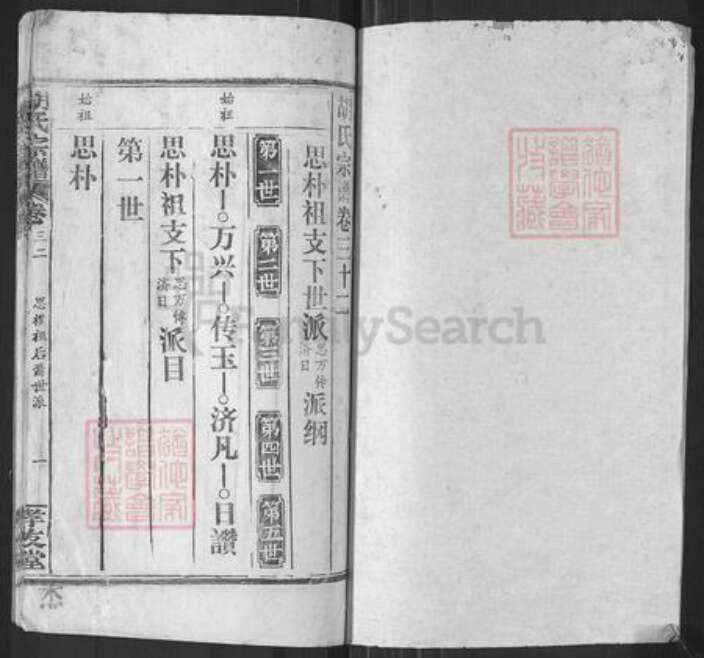 胡氏宗谱卷三十二
思朴祖支下世派思万传济日派纲
第一世 第二世 第三世 第四世 第五世
始祖 思朴—○万兴—○传玉—○济凡—○日讚
思朴祖支下思万传济日派目
第一世
始祖 思朴
胡氏宗谱 卷三二 思朴祖后裔世派 一 孝友堂
FamilySearch